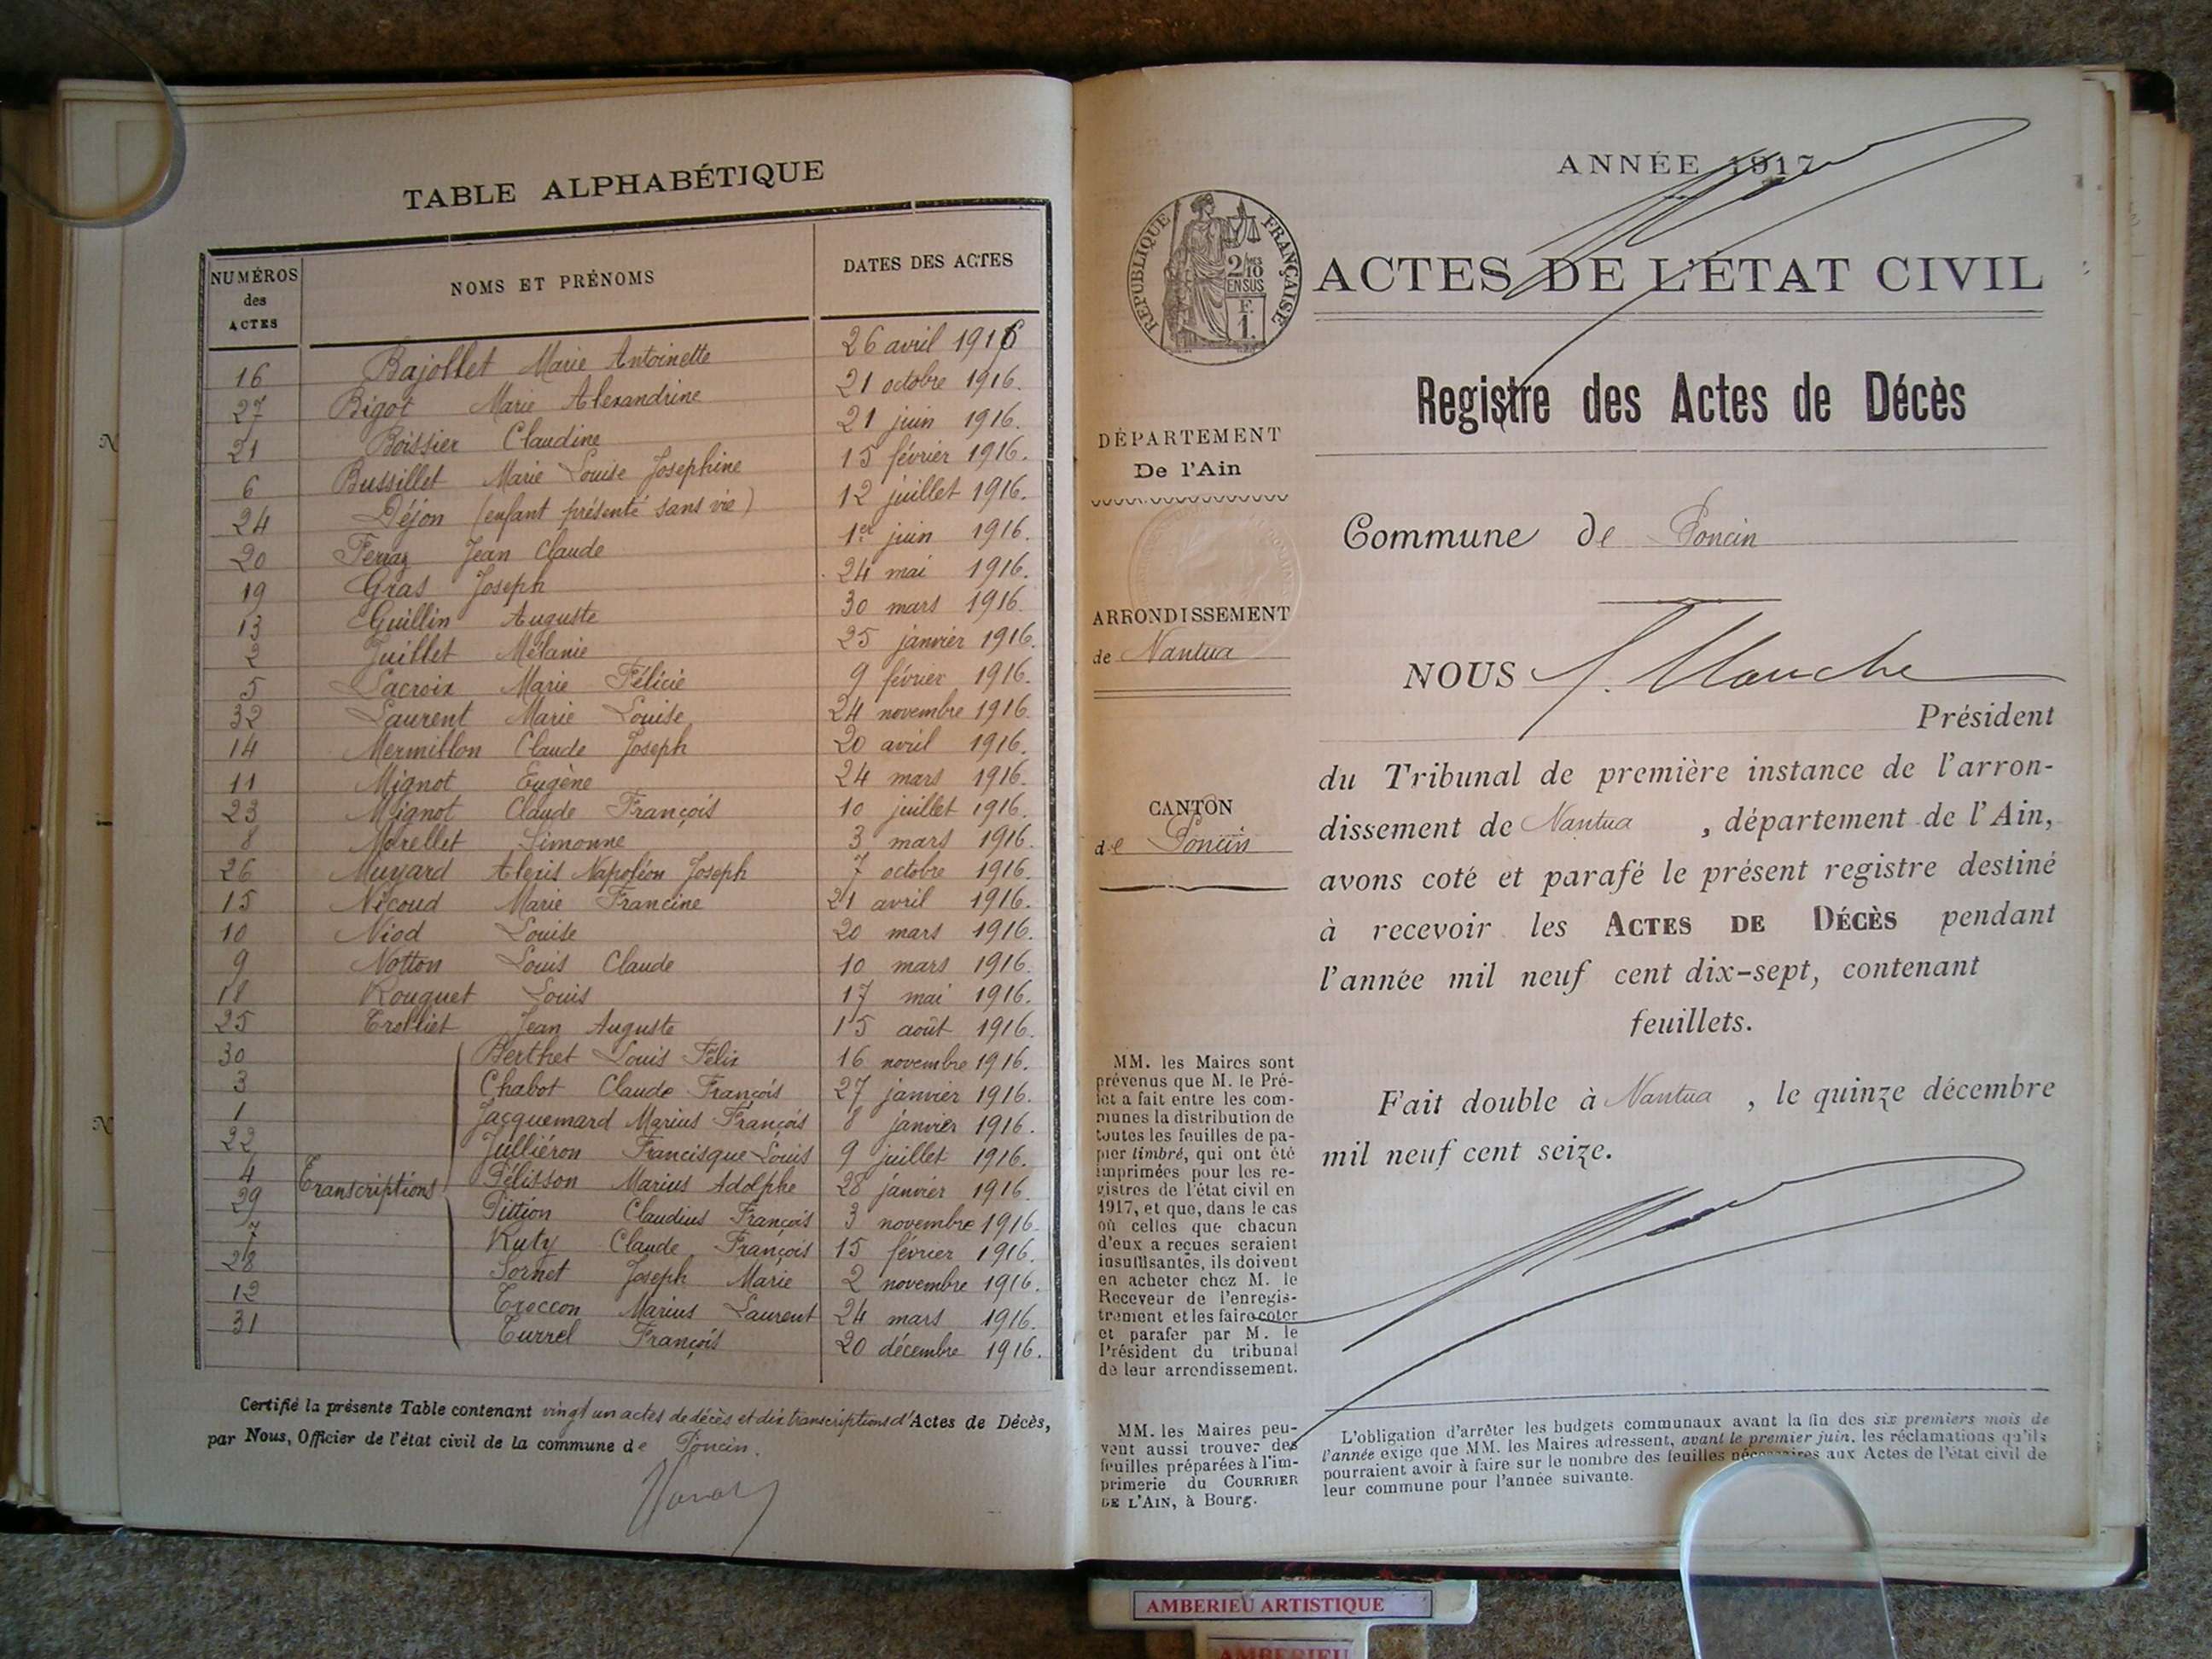 TABLE ALPHABÉTIQUE
NUMÉROS des ACTES NOMS ET PRÉNOMS DATES DES ACTES
16 Bajollet Marie Antoinette 26 avril 1916
27 Bigot Marie Alexandrine 21 octobre 1916.
21 Boissier Claudine 21 juin 1916.
6 Bussillet Marie Louise Josephine 15 février 1916.
24 Déjon (enfant présenté sans vie) 12 juillet 1916.
20 Ferraz Jean Claude 1er juin 1916.
19 Gras Joseph 24 mai 1916.
13 Guillin Auguste 30 mars 1916.
2 Juillet Mélanie 25 janvier 1916.
5 Lacroix Marie Félicie 9 février 1916.
32 Laurent Marie Louise 24 novembre 1916.
14 Mermillon Claude Joseph 20 avril 1916.
11 Mignot Eugène 24 mars 1916.
23 Mignot Claude François 10 juillet 1916.
8 Morellet Simonne 3 mars 1916.
26 Muyard Alexis Napoléon Joseph 7 octobre 1916.
15 Nicoud Marie Francine 21 avril 1916.
10 Niod Louise 20 mars 1916.
9 Notton Louis Claude 10 mars 1916.
18 Rouguet Louis 17 mai 1916.
25 Trolliet Jean Auguste 15 août 1916.
30 Berthet Louis Félix 16 novembre 1916.
3 Chabot Claude François 27 janvier 1916.
1 Jacquemard Marius François 8 janvier 1916.
22 Julliéron Francisque Louis 9 juillet 1916.
4 Transcriptions Pélisson Marius Adolphe 28 janvier 1916.
29 Pittion Claudius François 3 novembre 1916.
7 Ruty Claude François 15 février 1916.
28 Sornet Joseph Marie 2 novembre 1916.
12 Troccon Marius Laurent 24 mars 1916.
31 Turrel François 20 décembre 1916.
Certifié la présente Table contenant vingt un actes de décès et dix transcriptions d'Actes de Décès,
par Nous, Officier de l'état civil de la commune de Poncin.
ANNÉE 1917
RÉPUBLIQUE FRANÇAISE
2/10
EN SUS
F.
1.
ACTES DE L'ÉTAT CIVIL
Registre des Actes de Décès
DÉPARTEMENT
De l'Ain
Commune de Poncin
ARRONDISSEMENT
de Nantua
CANTON
de Poncin
NOUS
Président
du Tribunal de première instance de l'arron-
dissement de Nantua , département de l'Ain,
avons coté et parafé le présent registre destiné
à recevoir les ACTES DE DÉCÈS pendant
l'année mil neuf cent dix-sept, contenant
feuillets.
Fait double à Nantua , le quinze décembre
mil neuf cent seize.
MM. les Maires sont
prévenus que M. le Pré-
fet a fait entre les com-
munes la distribution de
toutes les feuilles de pa-
pier timbré, qui ont été
imprimées pour les re-
gistres de l'état civil en
1917, et que, dans le cas
où celles que chacun
d'eux a reçues seraient
insuffisantes, ils doivent
en acheter chez M. le
Receveur de l'enregis-
trement et les faire coter
et parafer par M. le
Président du tribunal
de leur arrondissement.
MM. les Maires peu-
vent aussi trouver des
feuilles préparées à l'im-
primerie du COURRIER
DE L'AIN, à Bourg.
L'obligation d'arrêter les budgets communaux avant la fin des six premiers mois de
l'année exige que MM. les Maires adressent, avant le premier juin, les réclamations qu'ils
pourraient avoir à faire sur le nombre des feuilles nécessaires aux Actes de l'état civil de
leur commune pour l'année suivante.
AMBERIEU ARTISTIQUE
AMBERIEU